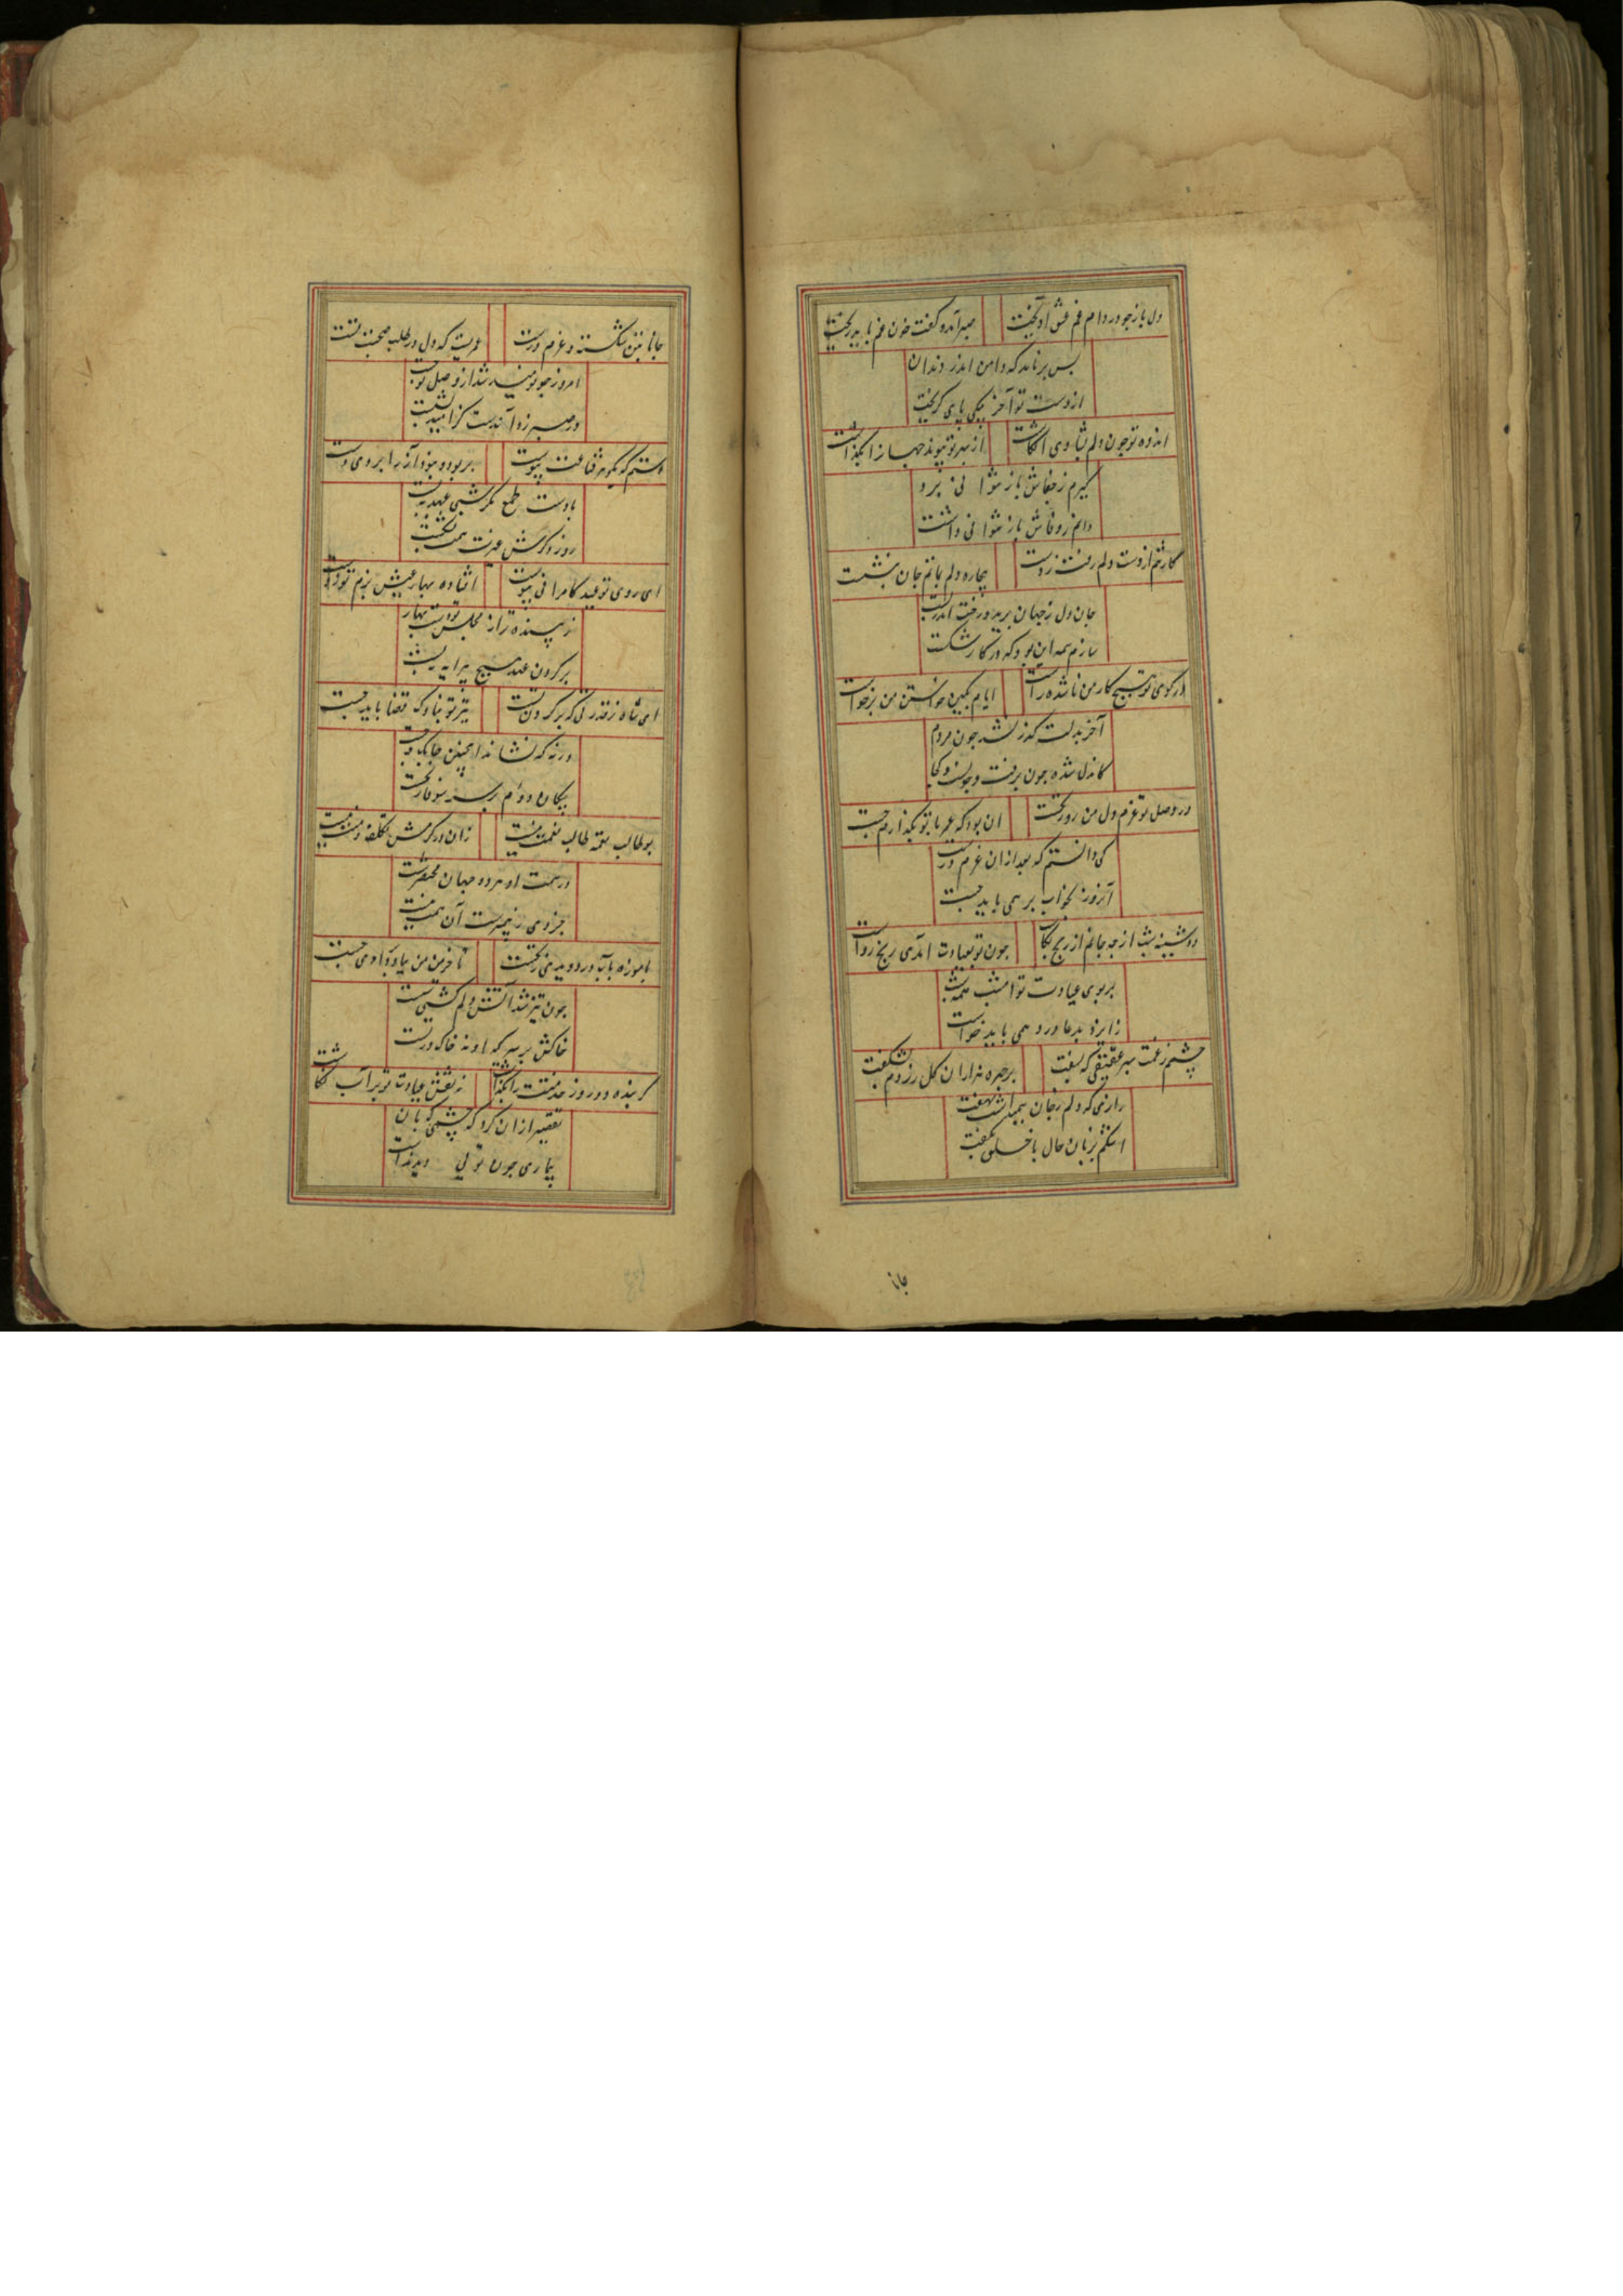 دل باز جو در دام غم عشق آویخت صبر آمد و گفت خون غم باید ریخت
بس برناید که دامن اندر دندان
از دست تو آخر بیکی پای گریخت
اندوه تو چون دلم بشادی انگاشت از بهر تو پیوند جهانرا بگذاشت
گیرم ز جفاش باز نتوانی برد
دانم ز وفاش باز نتوانی داشت
کارم از دست دلم رفت ز دست بیچاره دلم بماتم جان بنشست
جان و دل ز جهان برید و رخت اندر بست
سازم همه این بود که در کار شکست
در کوی تو هیچ کار من ناشده راست ایام بکین خواستن من برخاست
آخر بدلت گذر نشد چون مردم
کاندل شده چون برفت و چونست و کجا
در وصل تو عزم دل من روز نخست آن بود که عمر با تو بگذارم چست
کی دانستم که بعد ازان عزم درست
آنروز بخواب بر همی باید جست
دوشینه شب ارچه جانم از رنج بکاست چون تو بعیادت آمدی رنج رواست
بر بوی عیادت تو امشب همه شب
زایزد بدعا درد همی باید خواست
چشم ز غمت بهر عقیقی که بسفت بر چهره هزاران گل رازم بشکفت
رازی که دلم ز جان همیداشت نهفت
اشکم بزبان حال با خلق بگفت
جانا
جانا بتن شکسته و عزم درست عمریست که دل در طلب صحبت تست
امروز چو نومید شد از وصل تو جست
در صبر زد آندست کز امید بشست
بادست طمع
ای روی تو عید کامرانی پیوست افتاده بهار عیش بزم تو ز دست
زیبنده‌تر از مجلس تو دست بهار
بر گردن عید هیچ پیرایه نبست
ای شاه ز قدرتی که بر گردن تست تیر تو بناوک قضا باید جست
ورنه که نشاند اینچنین چابک و چست
پیکان دوم برسر سوفار نخست
بوطالب نعمه طالب نعمت نیست زان در کرمش تکلف و منت نیست
در همت او هر دو جهان مختصرست
جز وی ز نیست آن همت نیست
با موزه بآب در دویدی نخست تا خرمن من بباد بر دادی چست
چون تیز شد آتش دلم گشتی سست
خاکش بر سر که او نه خاک در تست
گر بنده دو روز خدمتت را بگذاشت نه نقش عیادت تو بر آب نگاشت
تقصیر ازان کرد که چشمی که بان
بیماری چون توئی دید نداشت